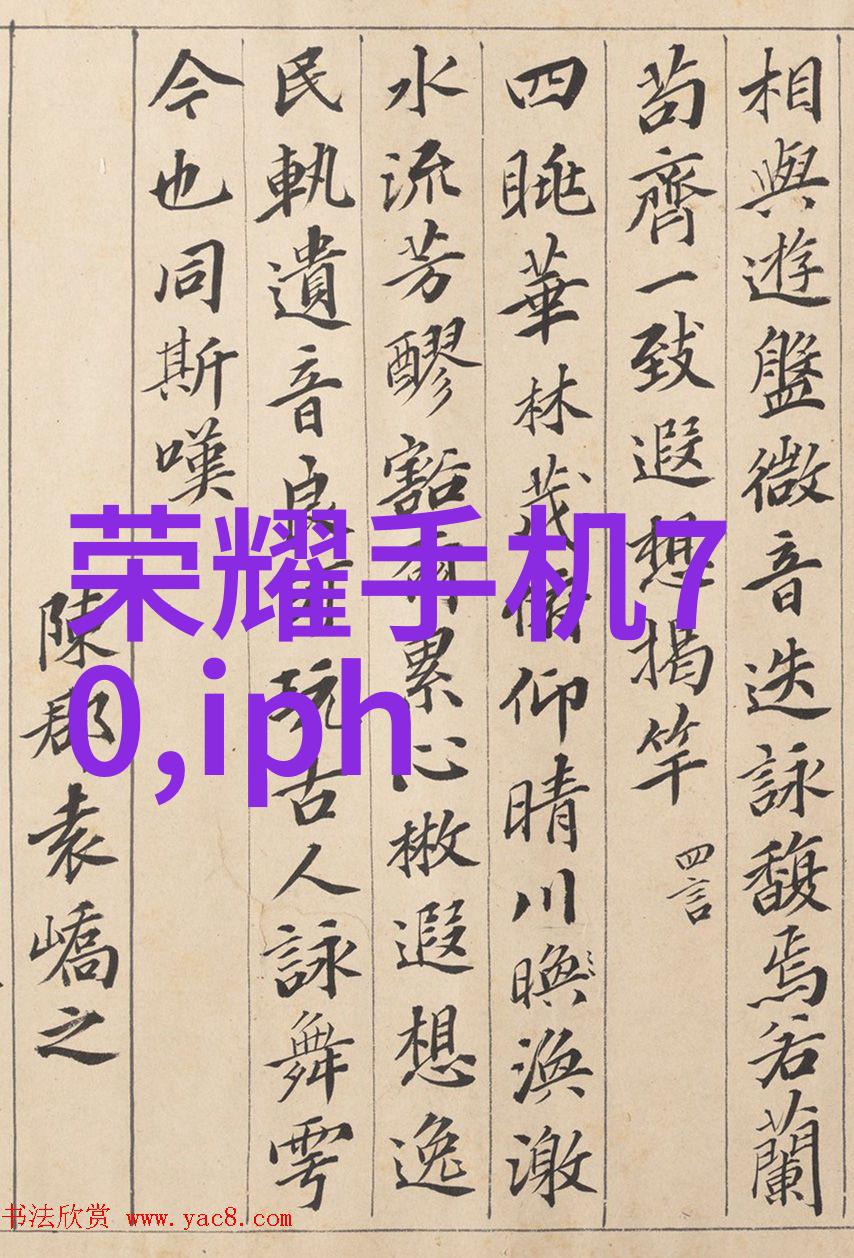 相與遊盤微音迭詠馥焉若蘭
苟齊一致遐想揭竿 四言
四眺華林茂俯仰晴川渙激
水流芳醪豁爾累心遐想逸
民軌遺音良可玩古人詠舞雩
今也同斯嘆
陳郡袁嶠之
荣耀手机7
0,iph
书法欣赏 www.yac8.com